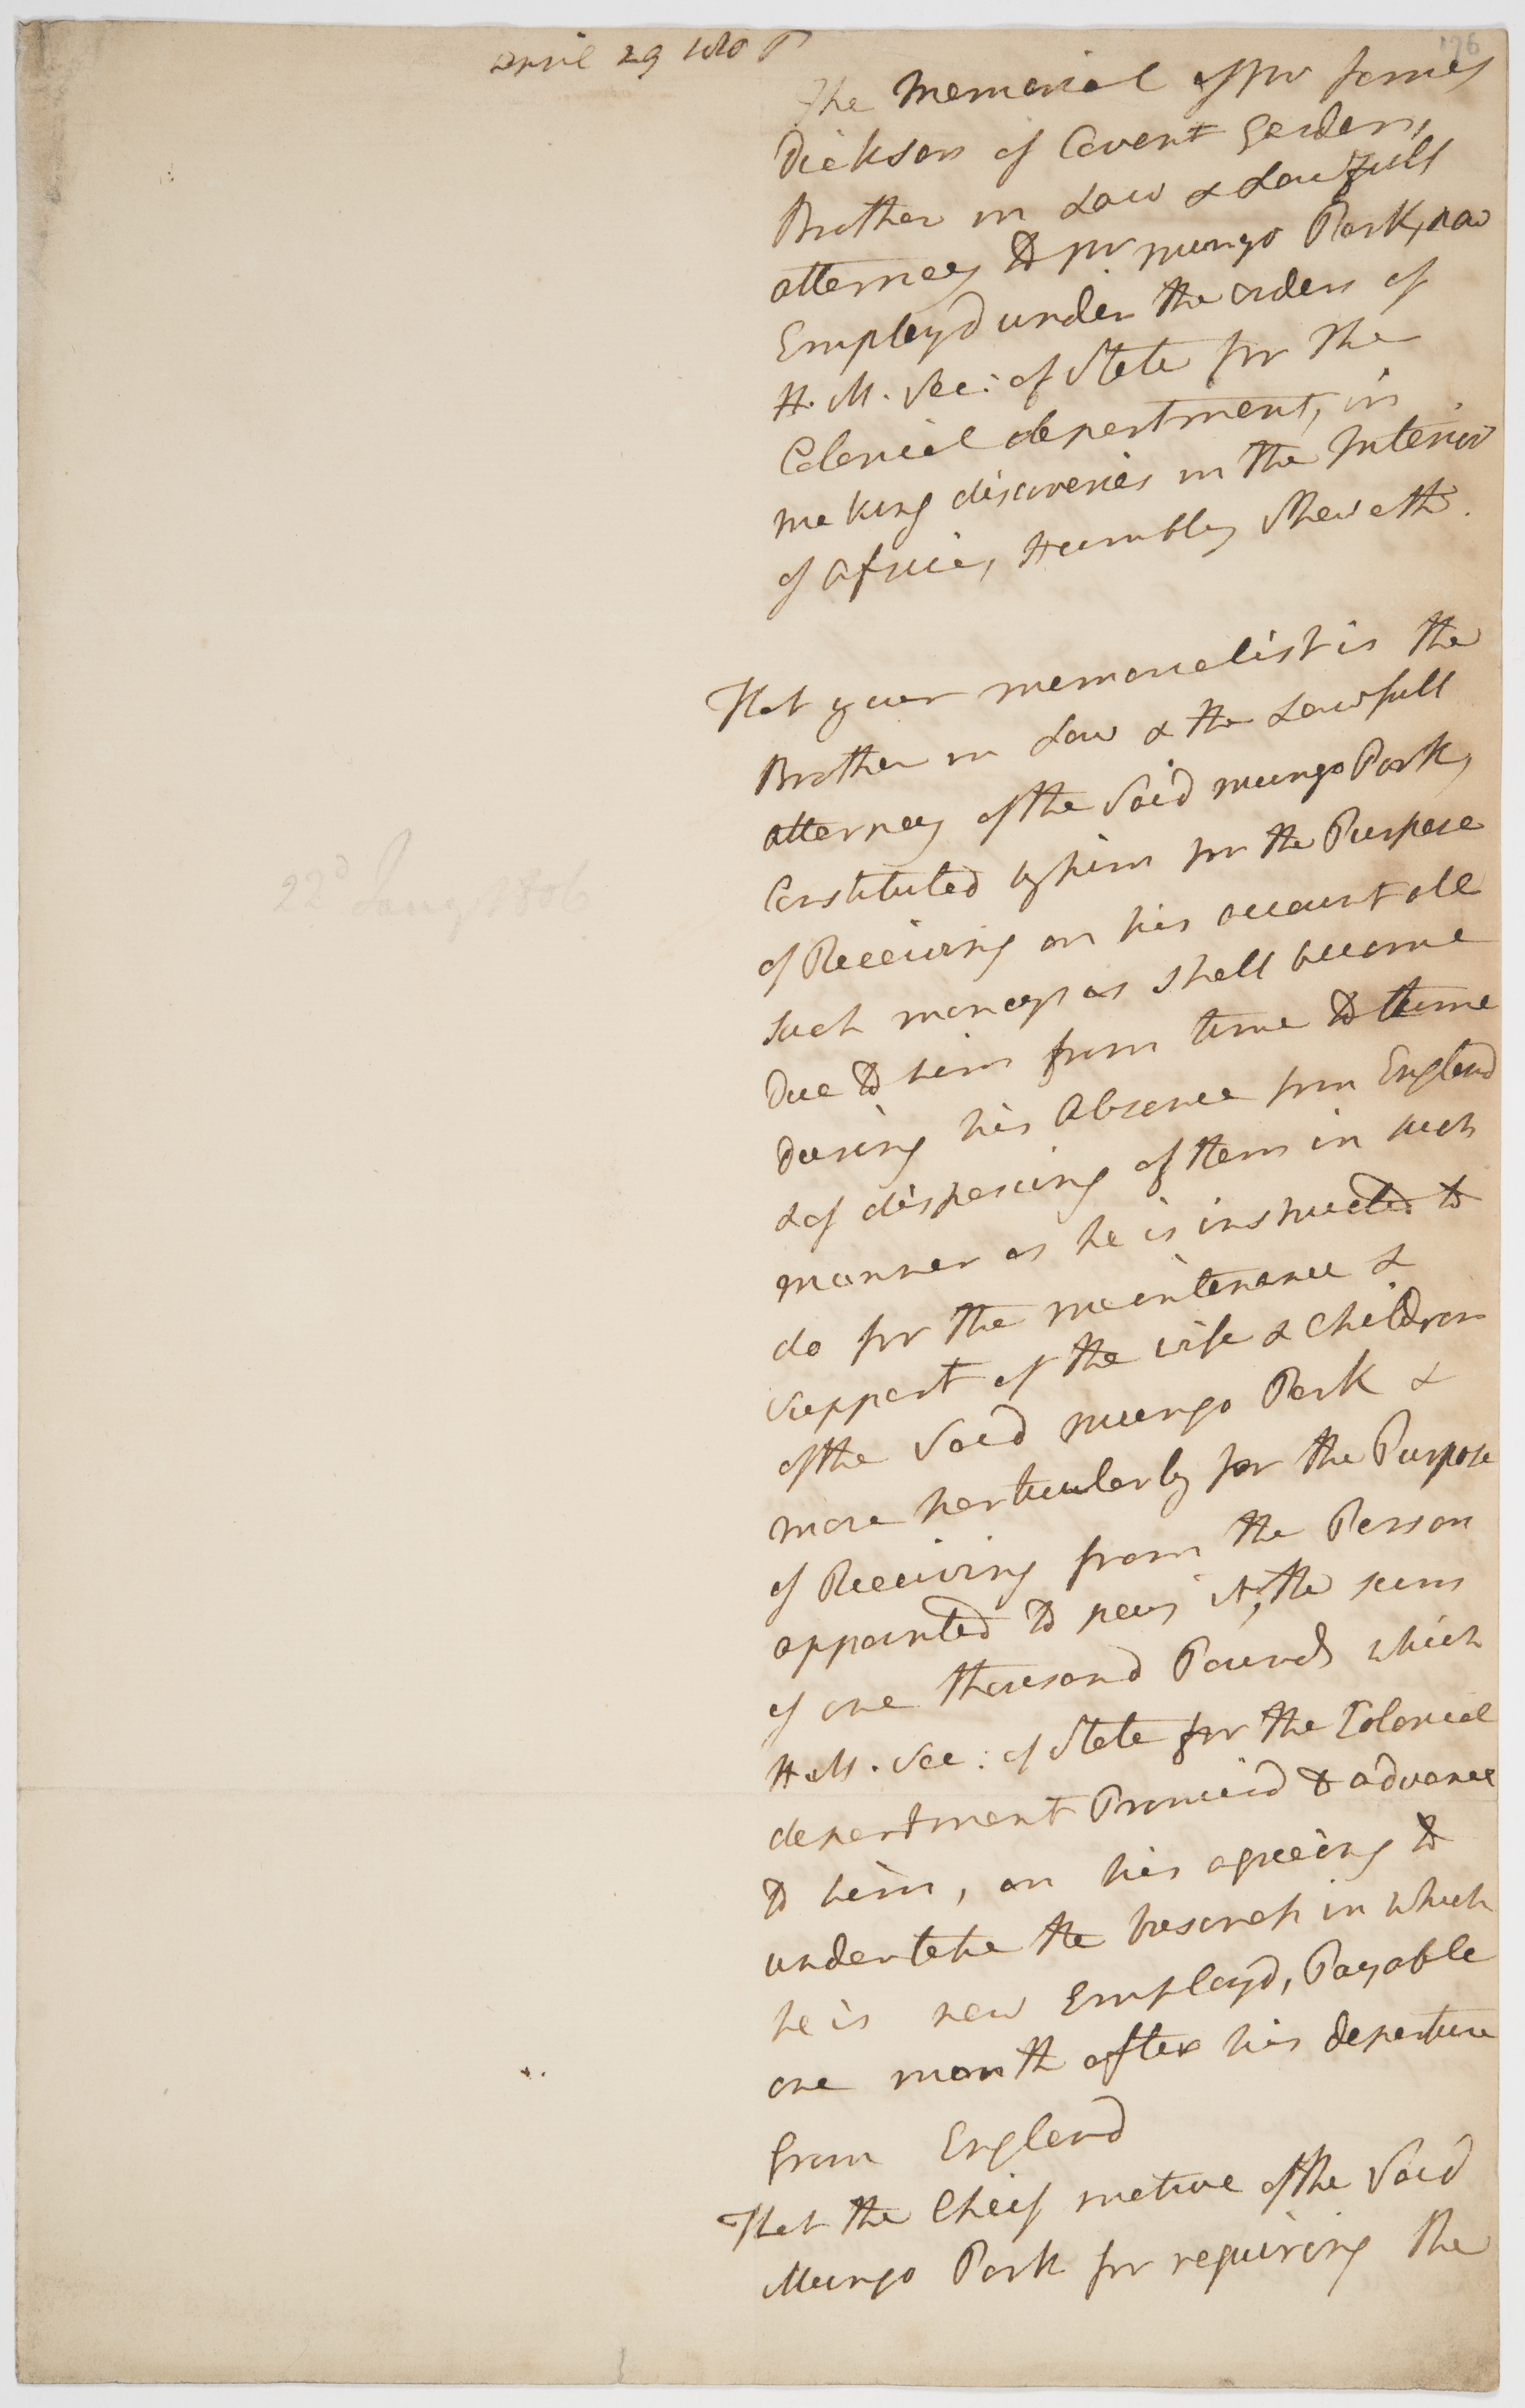 April 29 180
176
The Memorial of Mr James
Dickson of Covent Garden,
Brother in Law & Lawfull
attorney to Mr Mungo Park, now
Employd under the orders of
H. M. Sec: of State for the
Colonial department, in
making discoveries in the Interior
of Africa, Humbly Sheweth.
That your memorialist is the
Brother in Law & the Lawfull
attorney of the Said Mungo Park,
Constituted by him for the Purpose
of Receiving on his account all
such moneys as shall become
Due to him from time to time
During his Absence from England
& of disposing of them in such
manner as he is instructed to
do for the maintenance &
support of the wife & Children
of the Said Mungo Park &
more particularly for the Purpose
of Receiving from the Person
appointed to pay it, the sum
of one thousand Pounds which
H. M. Sec: of State for the Colonial
department Promisd to advance
to him, on his agreeing to
undertake the business in which
he is now Employd, Payable
one month after his departure
from England
That the Cheif motive of the Said
Mungo Park for requiring the
22d Jany 1806